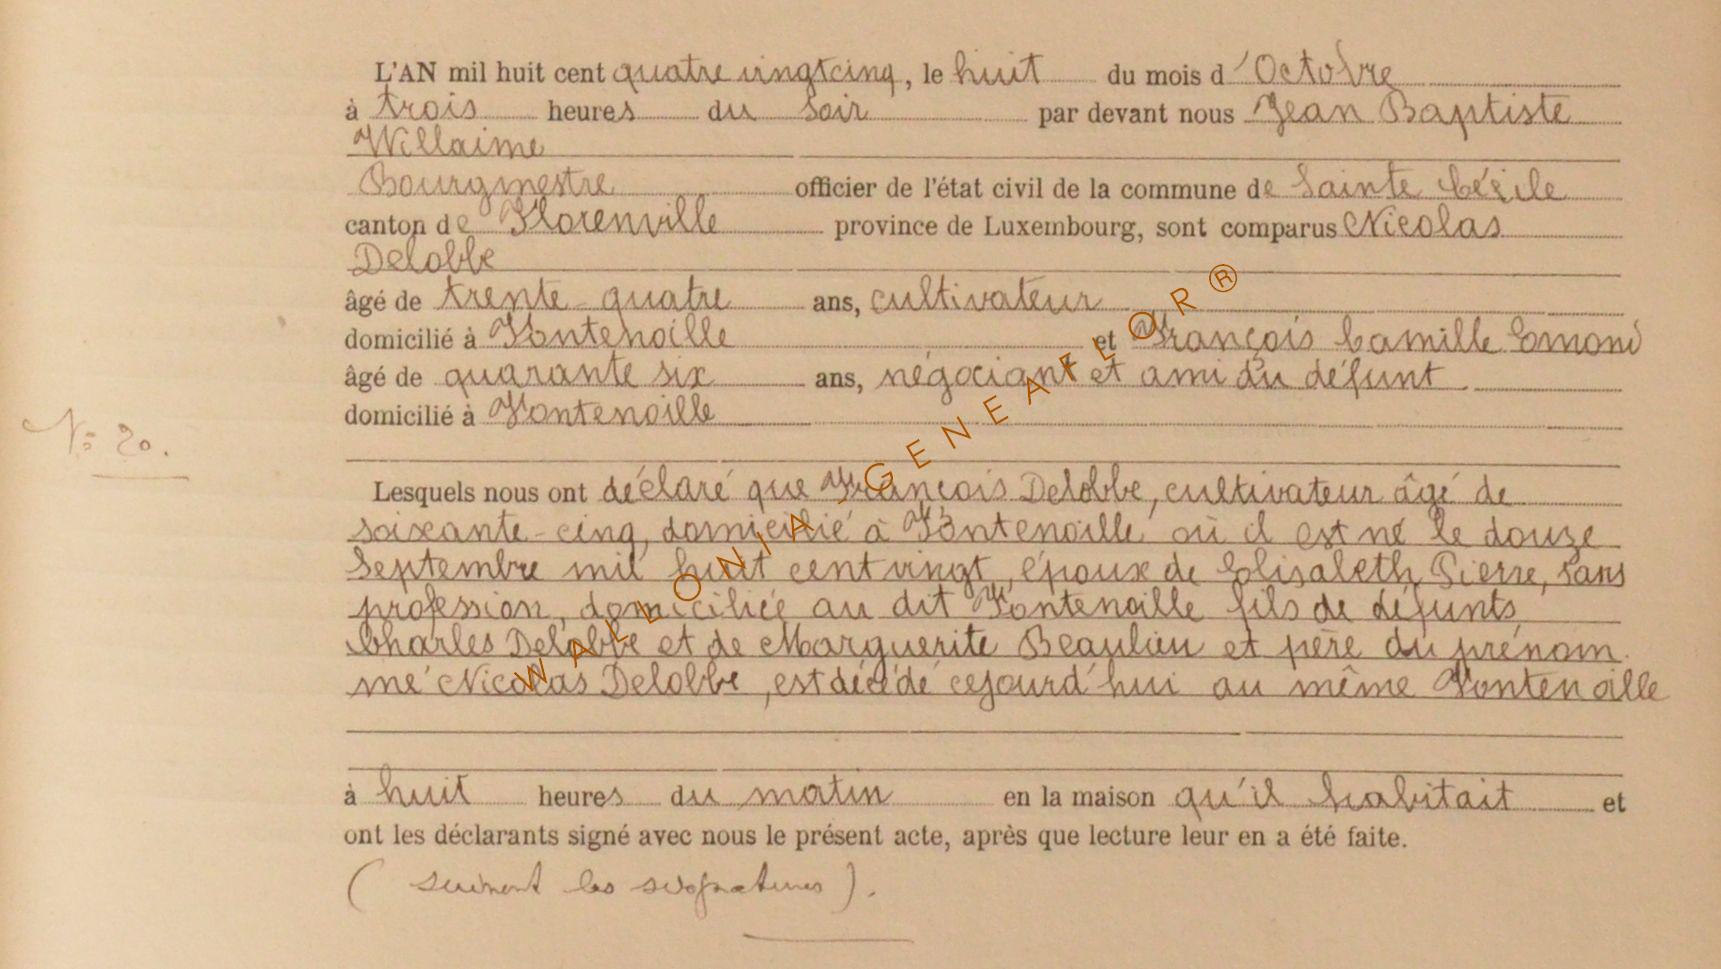 L'AN mil huit cent quatre vingt cinq, le huit du mois d'Octobre
à trois heures du soir par devant nous Jean Baptiste
Willaime
Bourgmestre officier de l'état civil de la commune de Sainte Cécile
canton de Florenville province de Luxembourg, sont comparus Nicolas
Delobbe
âgé de trente-quatre ans, cultivateur
domicilié à Fontenoille et François Camille Emond
âgé de quarante six ans, négociant et ami du défunt.
domicilié à Fontenoille
N° 20.
Lesquels nous ont déclaré que François Delobbe, cultivateur âgé de
soixante-cinq, domicilié à Fontenoille où il est né le douze
Septembre mil huit cent vingt, époux de Elisabeth Pierre, sans
profession, domiciliée au dit Fontenoille fils de défunts
Charles Delobbe et de Marguerite Beaulieu et père du prénom-
mé Nicolas Delobbe, est décédé cejourd'hui au même Fontenoille
à huit heures du matin en la maison qu'il habitait et
ont les déclarants signé avec nous le présent acte, après que lecture leur en a été faite.
(suivent les signatures).
WALLONIA GENEAFLOR®